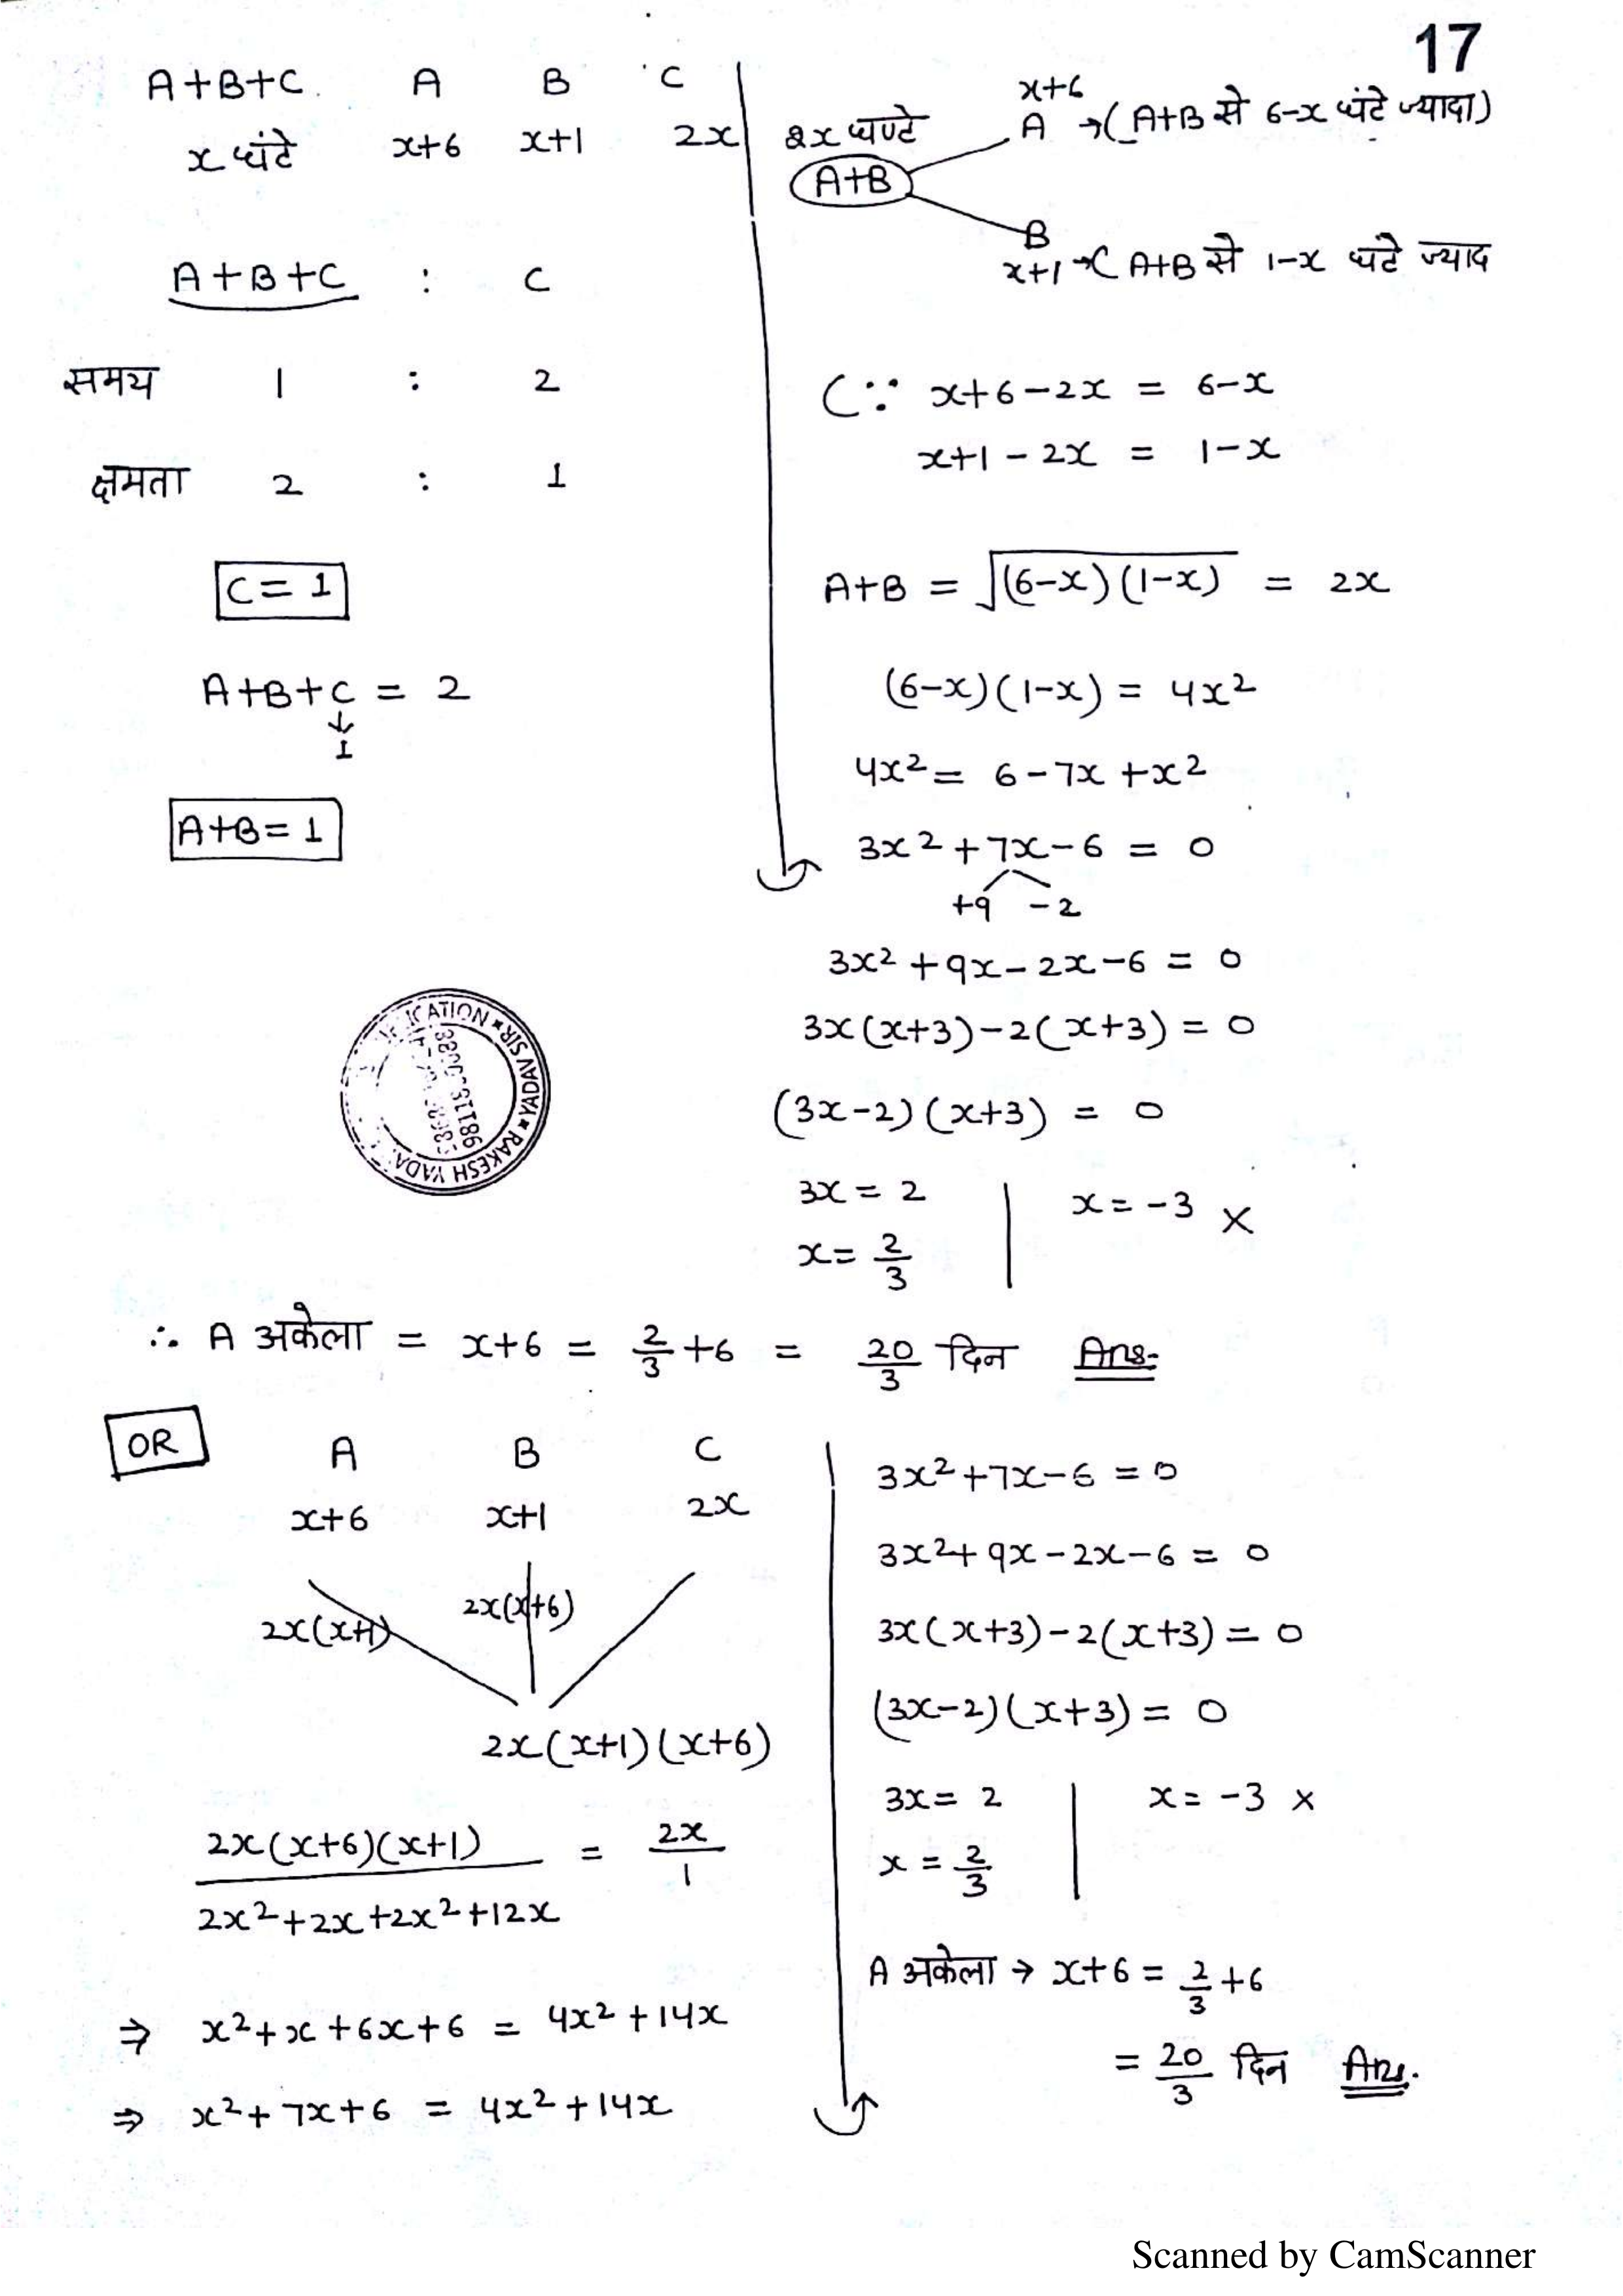 17
A+B+C. A B C
x घंटे x+6 x+1 2x
A+B+C : C
समय 1 : 2
क्षमता 2 : 1
C = 1
A+B+C = 2
↓
1
A+B = 1
x+6
2x घण्टे A →(A+B से 6-x घंटे ज्यादा)
A+B
B
x+1 →( A+B से 1-x घंटे ज्याद
(∵ x+6-2x = 6-x
x+1-2x = 1-x
A+B = √(6-x)(1-x) = 2x
(6-x)(1-x) = 4x²
4x² = 6-7x+x²
3x²+7x-6 = 0
+9 -2
3x²+9x-2x-6 = 0
3x(x+3)-2(x+3) = 0
(3x-2)(x+3) = 0
3x = 2 | x = -3 ×
x = 2/3
YADAV SIR * RAKESH YADA
∴ A अकेला = x+6 = 2/3+6 = 20/3 दिन Ans.
OR A B C
x+6 x+1 2x
2x(x+1) 2x(x+6)
2x(x+1)(x+6)
2x(x+6)(x+1) = 2x
2x²+2x+2x²+12x 1
⇒ x²+x+6x+6 = 4x²+14x
⇒ x²+7x+6 = 4x²+14x
3x²+7x-6 = 0
3x²+9x-2x-6 = 0
3x(x+3)-2(x+3) = 0
(3x-2)(x+3) = 0
3x = 2 | x = -3 ×
x = 2/3
A अकेला → x+6 = 2/3+6
= 20/3 दिन Ans.
Scanned by CamScanner